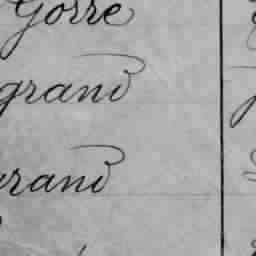 Gorre
grand
rand